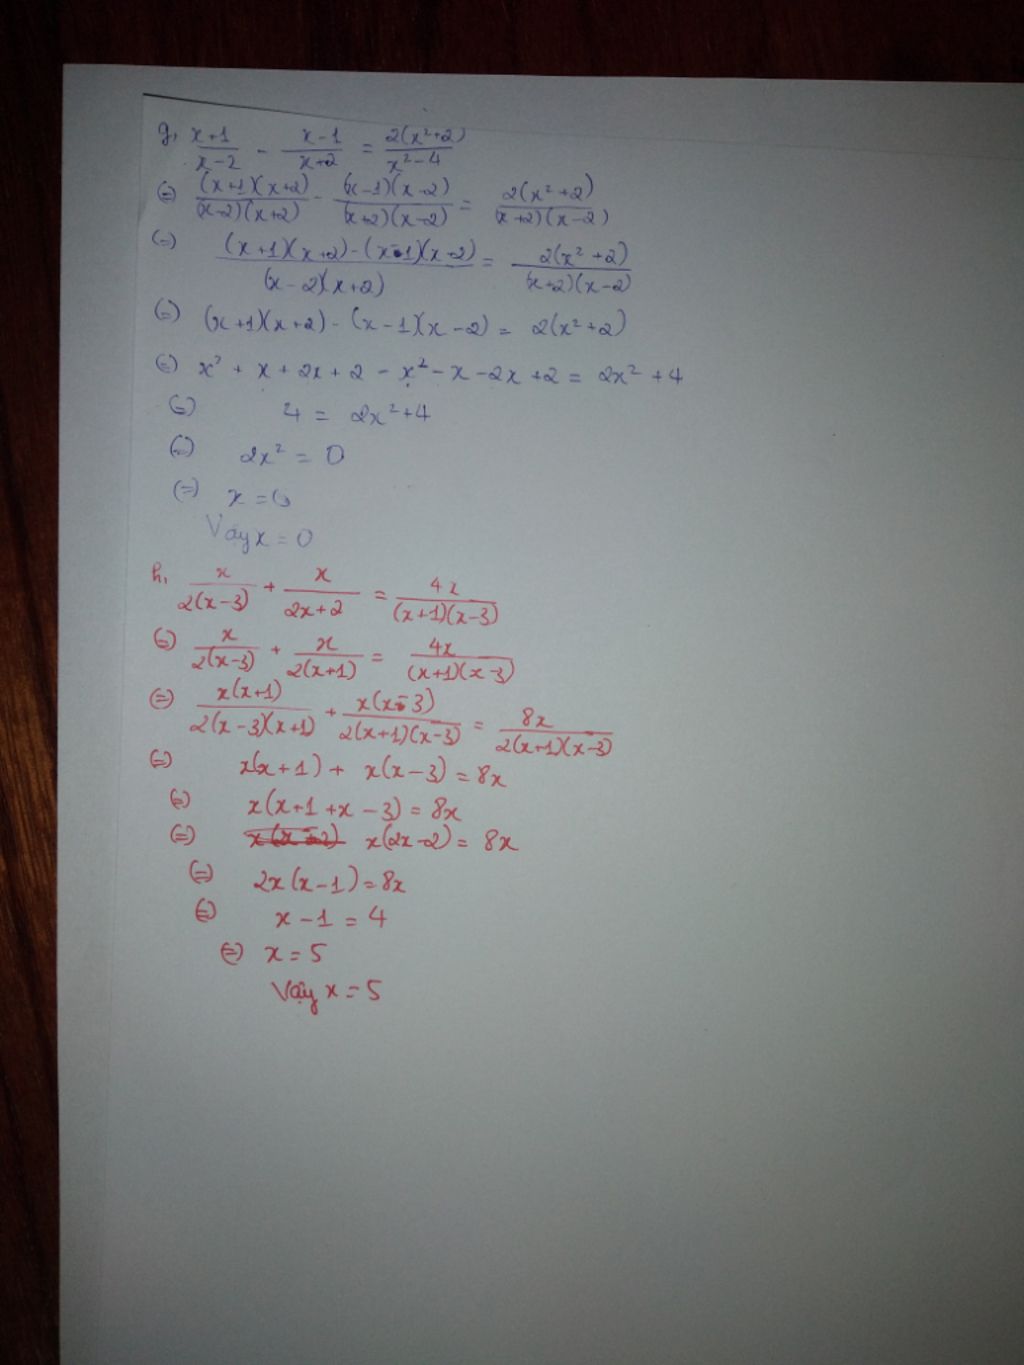 g, (x+1)/(x-2) - (x-1)/(x+2) = 2(x²+2)/(x²-4)
(=) (x+1)(x+2)/(x-2)(x+2) - (x-1)(x-2)/(x+2)(x-2) = 2(x²+2)/(x+2)(x-2)
(=) (x+1)(x+2)-(x-1)(x-2)/(x-2)(x+2) = 2(x²+2)/(x+2)(x-2)
(=) (x+1)(x+2) - (x-1)(x-2) = 2(x²+2)
(=) x² + x + 2x + 2 - x² - x - 2x + 2 = 2x² + 4
(=) 4 = 2x²+4
(=) 2x² = 0
(=) x = 0
Vậy x = 0
h, x/2(x-3) + x/(2x+2) = 4x/(x+1)(x-3)
(=) x/2(x-3) + x/2(x+1) = 4x/(x+1)(x-3)
(=) x(x+1)/2(x-3)(x+1) + x(x-3)/2(x+1)(x-3) = 8x/2(x+1)(x-3)
(=) x(x+1) + x(x-3) = 8x
(=) x(x+1+x-3) = 8x
(=) x(2x-2) = 8x
(=) 2x(x-1) = 8x
(=) x-1 = 4
(=) x = 5
Vậy x = 5